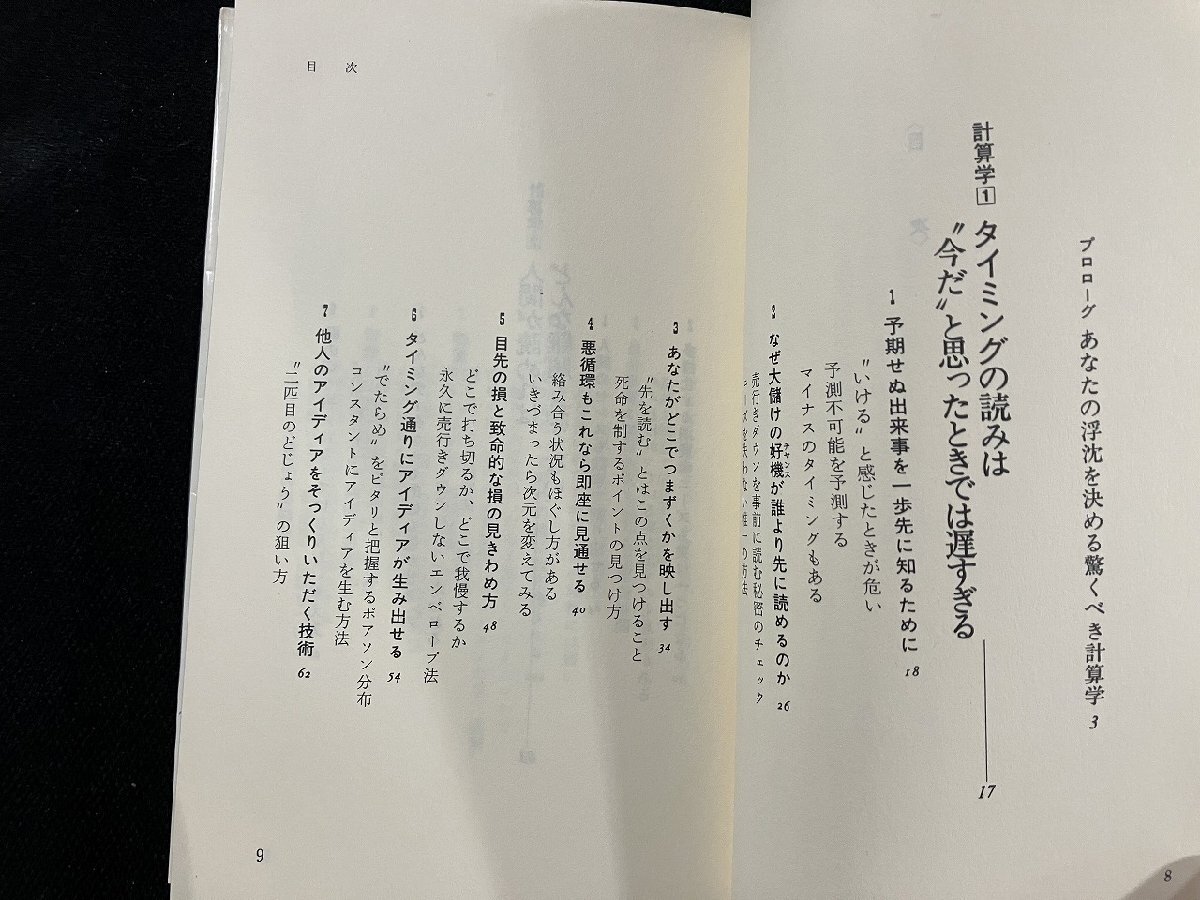 プロローグ あなたの浮沈を決める驚くべき計算学 3
計算学1 タイミングの読みは
“今だ”と思ったときでは遅すぎる 17
1 予期せぬ出来事を一歩先に知るために 18
“いける”と感じたときが危い
予測不可能を予測する
マイナスのタイミングもある
2 なぜ大儲けの好機が誰より先に読めるのか 26
チャンス
売行きダウンを事前に読む秘密のチェック
ーズを失わない唯一の方法
8
目次
3 あなたがどこでつまずくかを映し出す 34
“先を読む”とはこの点を見つけること
死命を制するポイントの見つけ方
4 悪循環もこれなら即座に見通せる 40
絡み合う状況もほぐし方がある
いきづまったら次元を変えてみる
5 目先の損と致命的な損の見きわめ方 48
どこで打ち切るか、どこで我慢するか
永久に売行きダウンしないエンベロープ法
6 タイミング通りにアイディアが生み出せる 54
“でたらめ”をピタリと把握するポアソン分布
コンスタントにアイディアを生む方法
7 他人のアイディアをそっくりいただく技術 62
“二匹目のどじょう”の狙い方
9